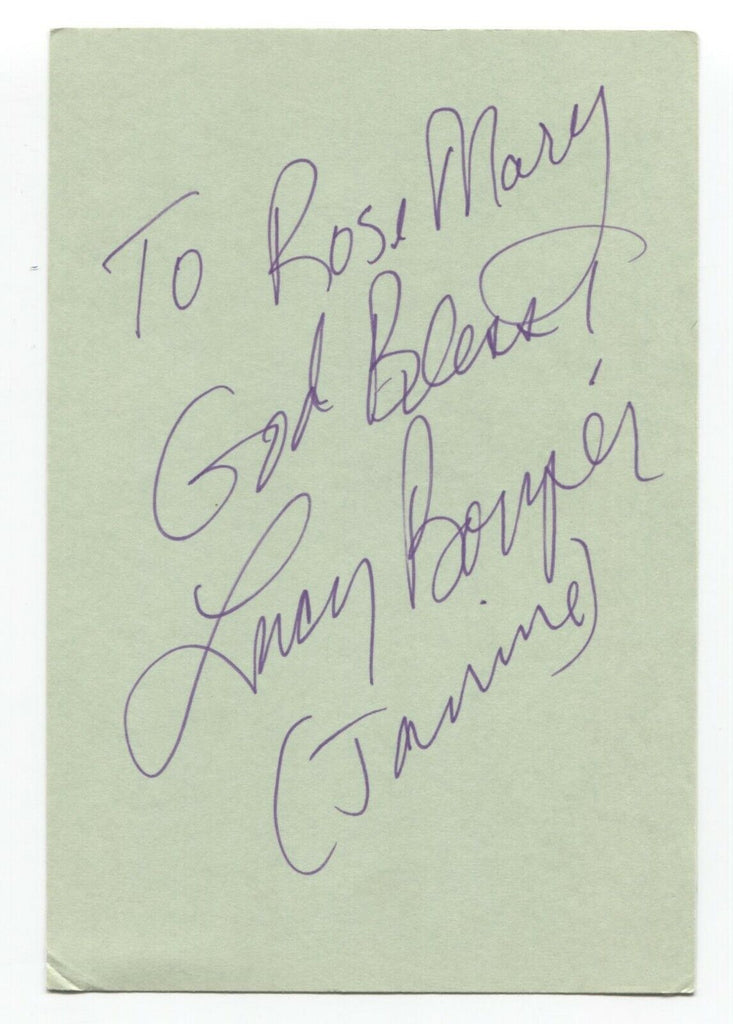 To RoseMary
God Bless!
Lucy Boryer
(Janine)